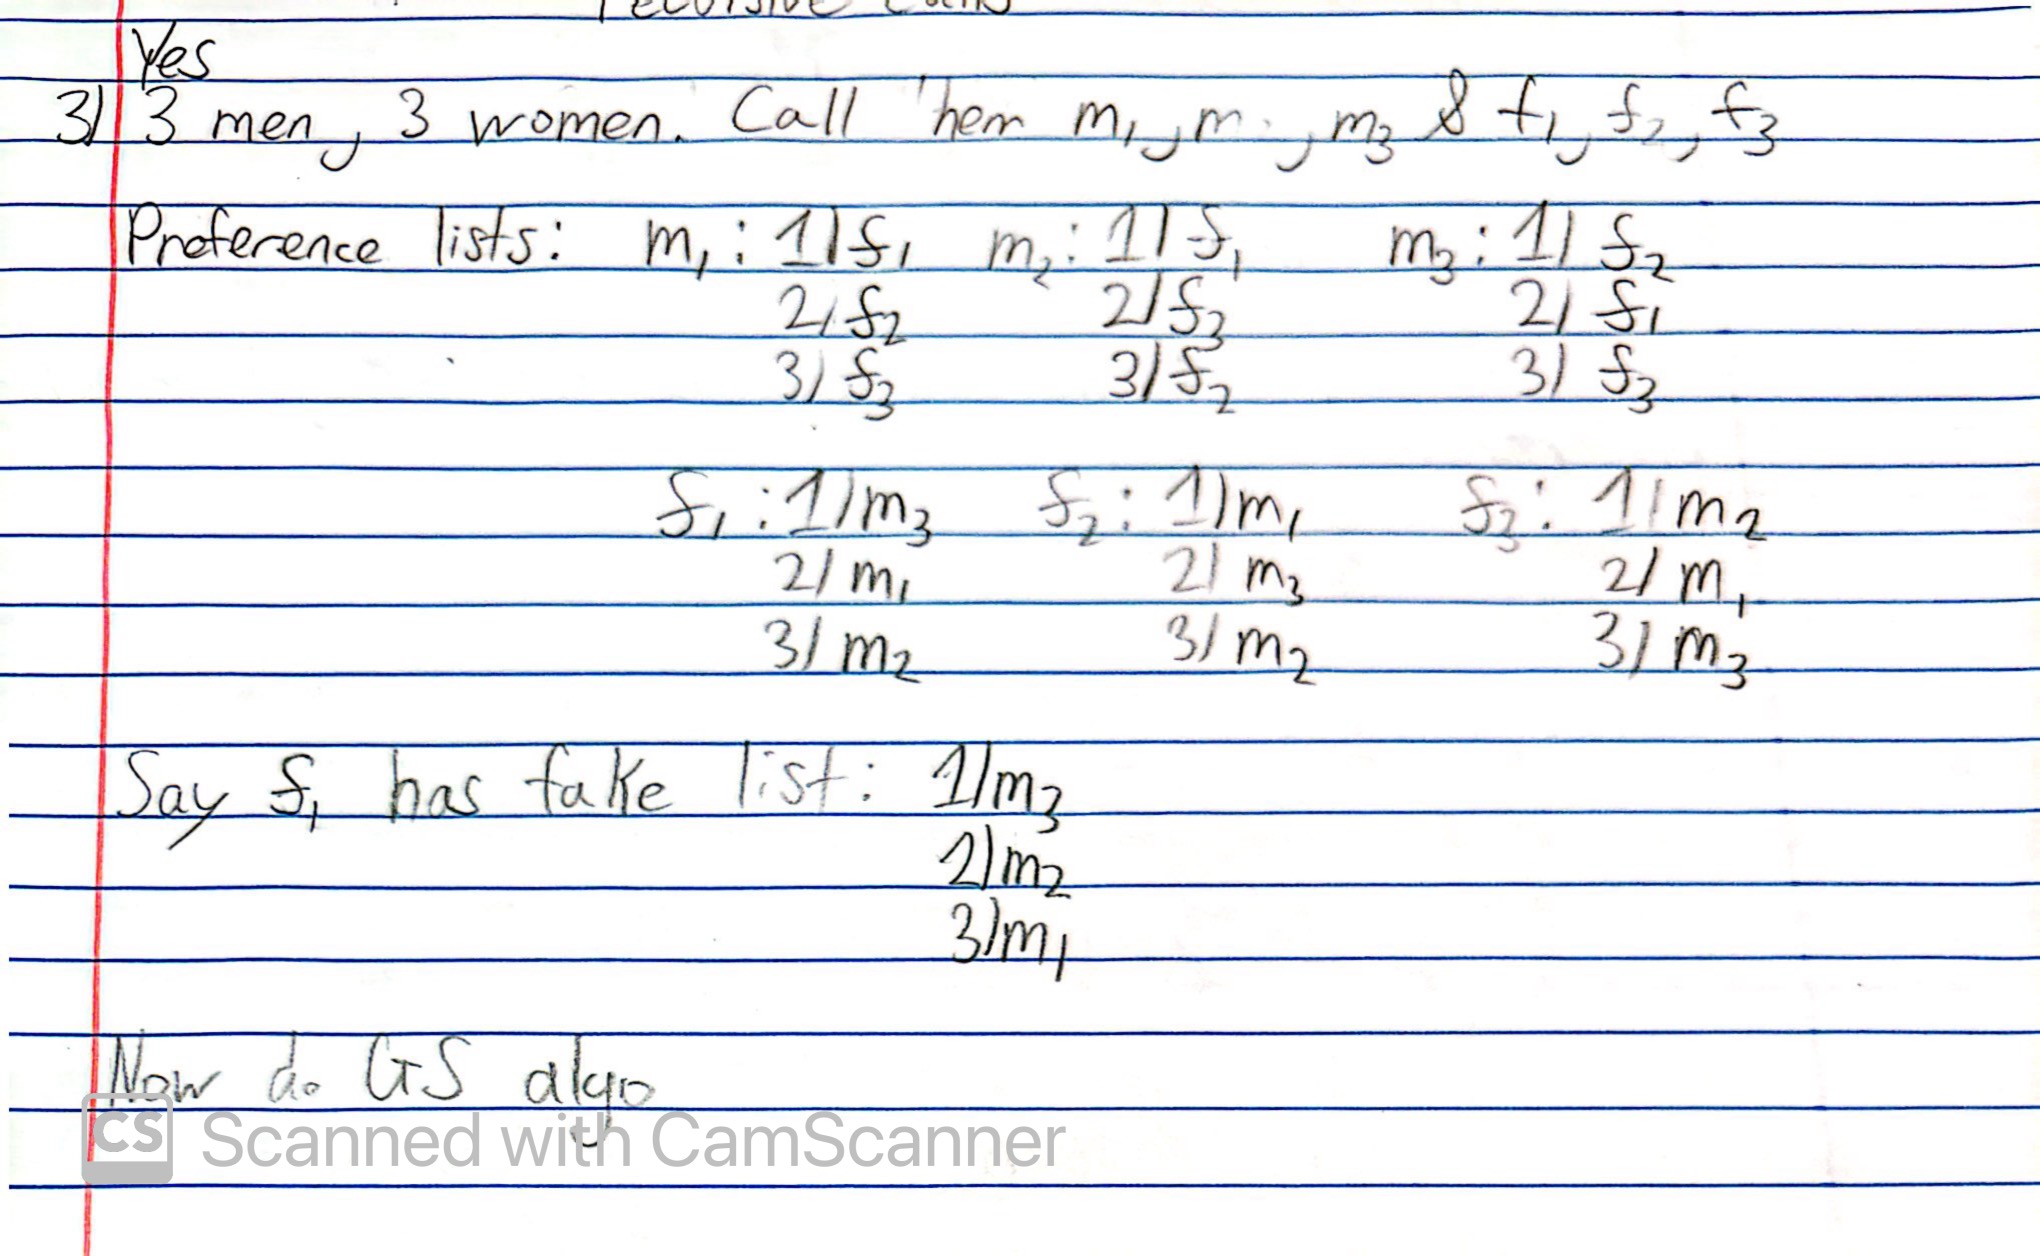 Yes
3) 3 men, 3 women. Call hem m₁, m, m₃ & f₁, f₂, f₃
Preference lists: m₁: 1) f₁ m₂: 1) f₁ m₃: 1) f₂
2) f₂ 2) f₃ 2) f₁
3) f₃ 3) f₂ 3) f₃
f₁: 1) m₃ f₂: 1) m₁ f₃: 1) m₂
2) m₁ 2) m₃ 2) m₁
3) m₂ 3) m₂ 3) m₃
Say f₁ has fake list: 1) m₃
2) m₂
3) m₁
Now do GS algo
CS Scanned with CamScanner